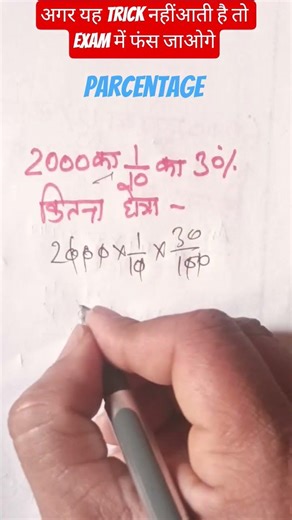 अगर यह TRICK नहीं आती है तो
EXAM में फंस जाओगे
PARCENTAGE
2000 का 1/10 का 30%
कितना होगा -
2000 × 1/10 × 30/100